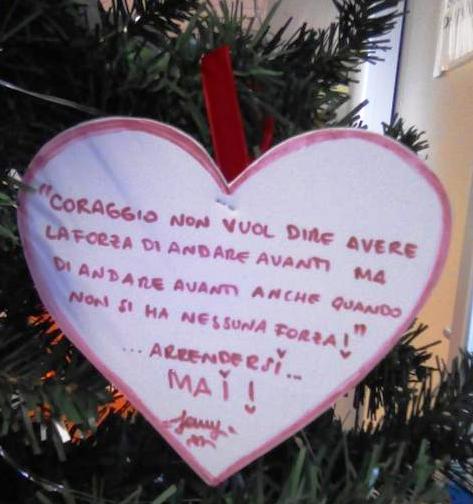 "CORAGGIO NON VUOL DIRE AVERE
LA FORZA DI ANDARE AVANTI MA
DI ANDARE AVANTI ANCHE QUANDO
NON SI HA NESSUNA FORZA!"
... ARRENDERSI...
MAI!